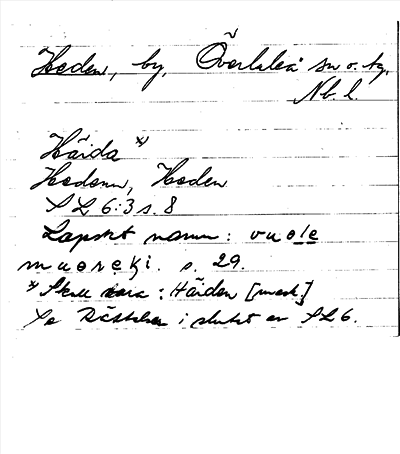 Heden, by, Överluleå sn o. tg.
Nb. l.
Häida *)
Hedenn, Heden
SL 6:3 s. 8
Lapskt namn: vuole
muoreki. s. 29.
*) Skall vara: Häiden [mask.]
Se Rättelser i slutet av SL 6.